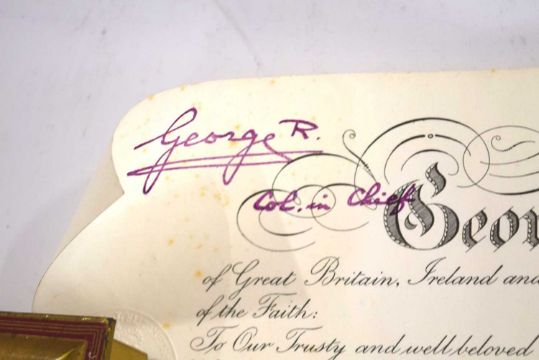 George R.
Col. in Chief
Geor
of Great Britain, Ireland and
of the Faith:
To Our Trusty and well beloved